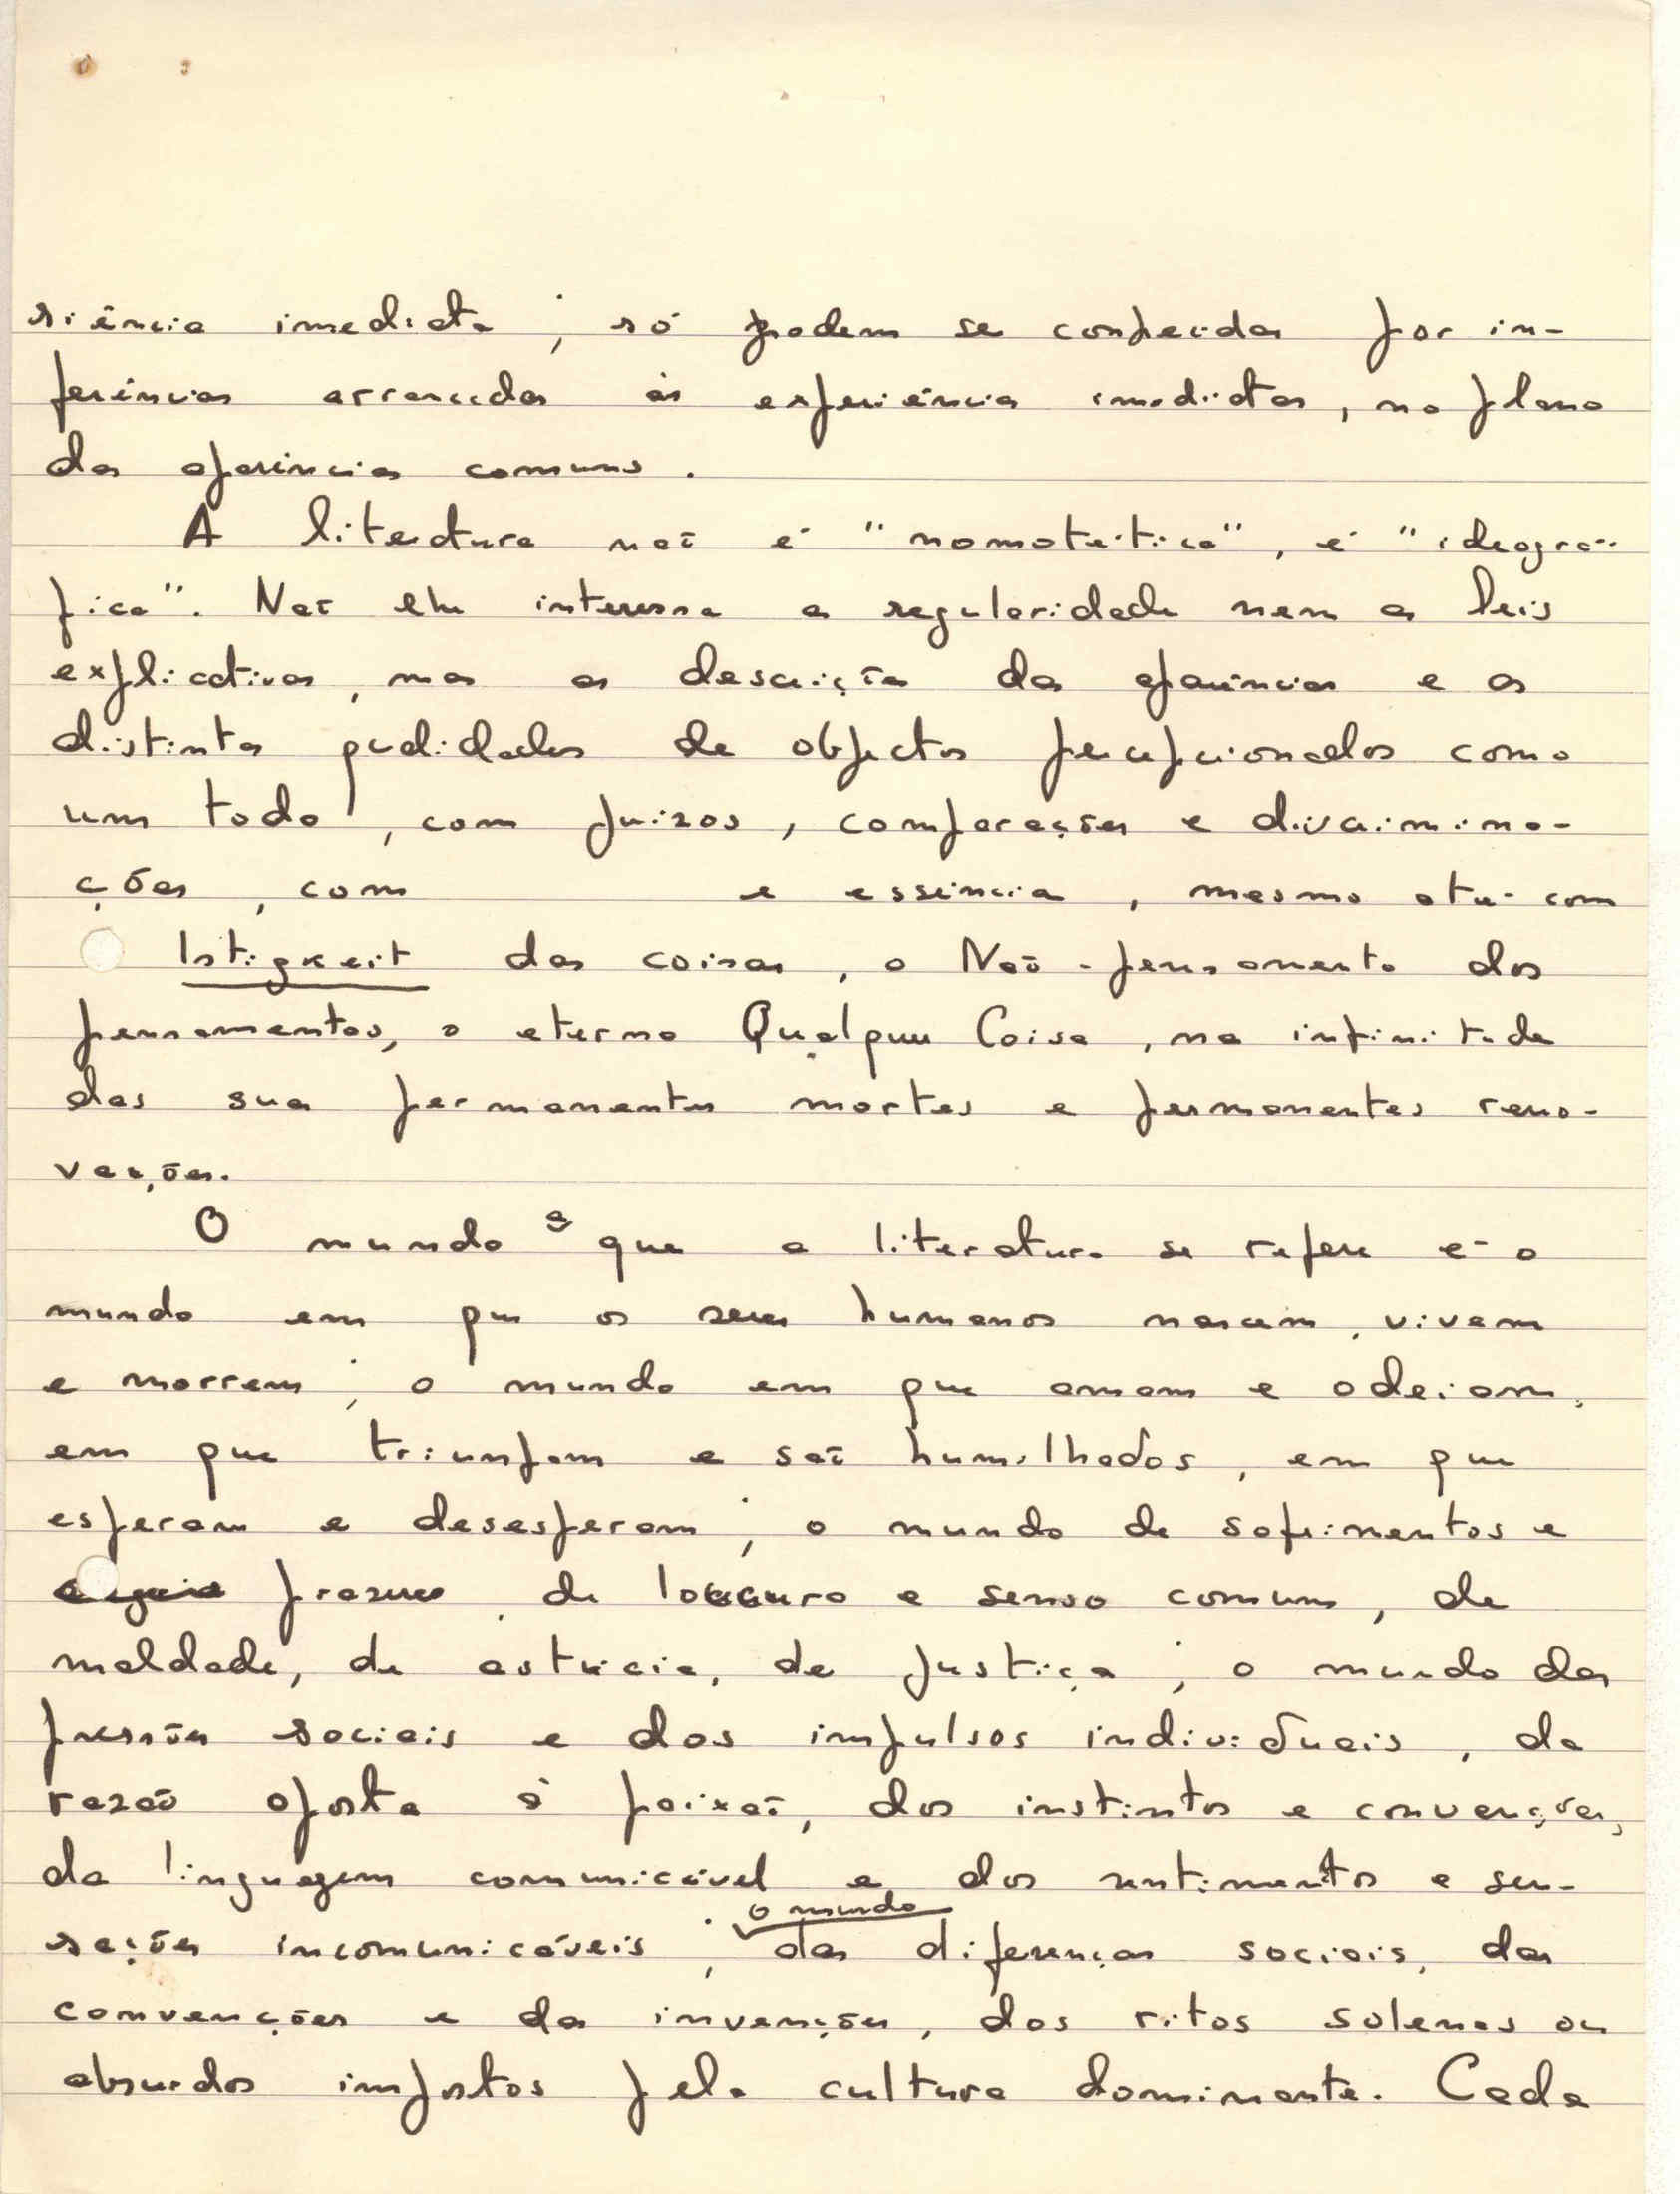 riência imediata; só podem ser conhecidas por in-
ferências arrancadas às experiências imediatas, no plano
das aparências comuns.
A literatura não é "nomotética", é "ideográ-
fica". Não lhe interessa a regularidade nem as leis
explicativas, mas as descrições das aparências e as
distintas qualidades de objectos percepcionados como
um todo, com juizos, comparações e discrimina-
ções, com e essência, mesmo até com
Istigkeit das coisas, o Não-pensamento dos
pensamentos, o eterno Qualquer Coisa, na infinitude
das suas permanentes mortes e permanentes reno-
vações.
O mundo a que a literatura se refere é o
mundo em que os seres humanos nascem, vivem
e morrem; o mundo em que amam e odeiam,
em que triunfam e são humilhados, em que
esperam e desesperam; o mundo de sofrimentos e
prazeres, de loucura e senso comum, de
maldade, de astúcia, de justiça; o mundo das
pressões sociais e dos impulsos individuais, da
razão oposta à paixão, dos instintos e convenções,
da linguagem comunicável e dos sentimentos e sen-
sações incomunicáveis; o mundo das diferenças sociais, das
convenções e da invenções, dos ritos solenes ou
absurdos impostos pela cultura dominante. Cada